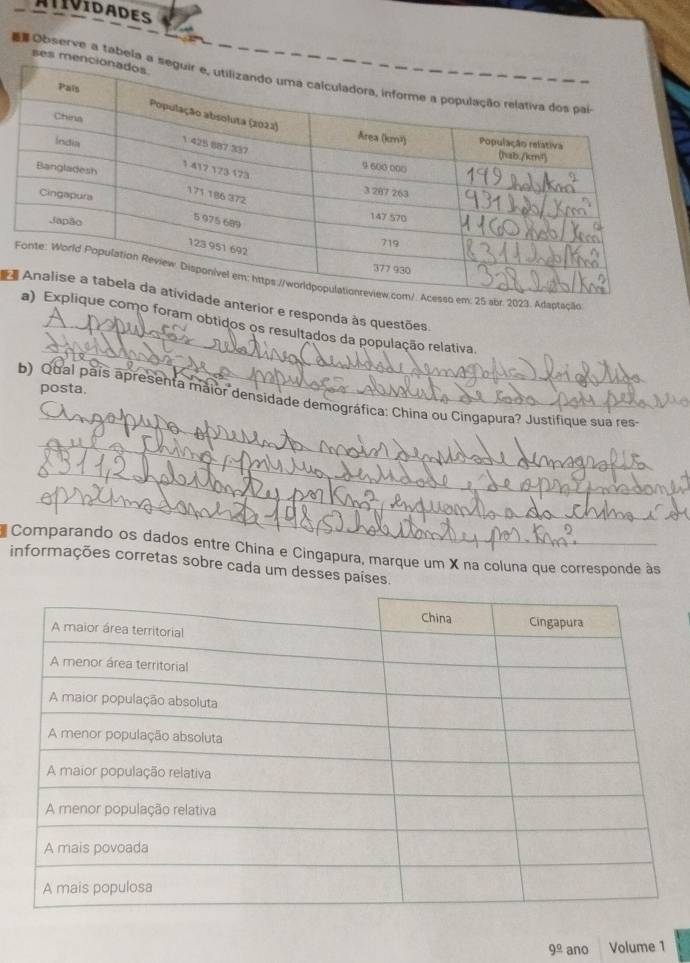 ATIVIDADES
Observe a tabela a seguir e, utilizando uma calculadora, informe a população relativa dos paí-
ses mencionados.
País População absoluta (2023) Área (km²) População relativa (hab./km²)
China 1 425 887 337 9 600 000 149 hab/km²
Índia 1 417 173 173 3 287 263 431 hab/km²
Bangladesh 171 186 372 147 570 1160 hab/km²
Cingapura 5 975 689 719 8311 hab/km²
Japão 123 951 692 377 930 328 hab/km²
Fonte: World Population Review. Disponível em: https://worldpopulationreview.com/. Acesso em: 25 abr. 2023. Adaptação.
2 Analise a tabela da atividade anterior e responda às questões.
a) Explique como foram obtidos os resultados da população relativa.
A população relativa (densidade demográfica) foi obtida
dividindo-se a população absoluta de cada país pela sua
área em Km²
b) Qual país apresenta maior densidade demográfica: China ou Cingapura? Justifique sua res-
posta.
Cingapura apresenta maior densidade demográfica
que a China, densidade, de aproximadament
8311,2 habitantes por Km², enquanto a da china é de
aproximadamente 148,53 habitantes por Km².
Comparando os dados entre China e Cingapura, marque um X na coluna que corresponde às
informações corretas sobre cada um desses países.
China Cingapura
A maior área territorial
A menor área territorial
A maior população absoluta
A menor população absoluta
A maior população relativa
A menor população relativa
A mais povoada
A mais populosa
9º ano Volume 1